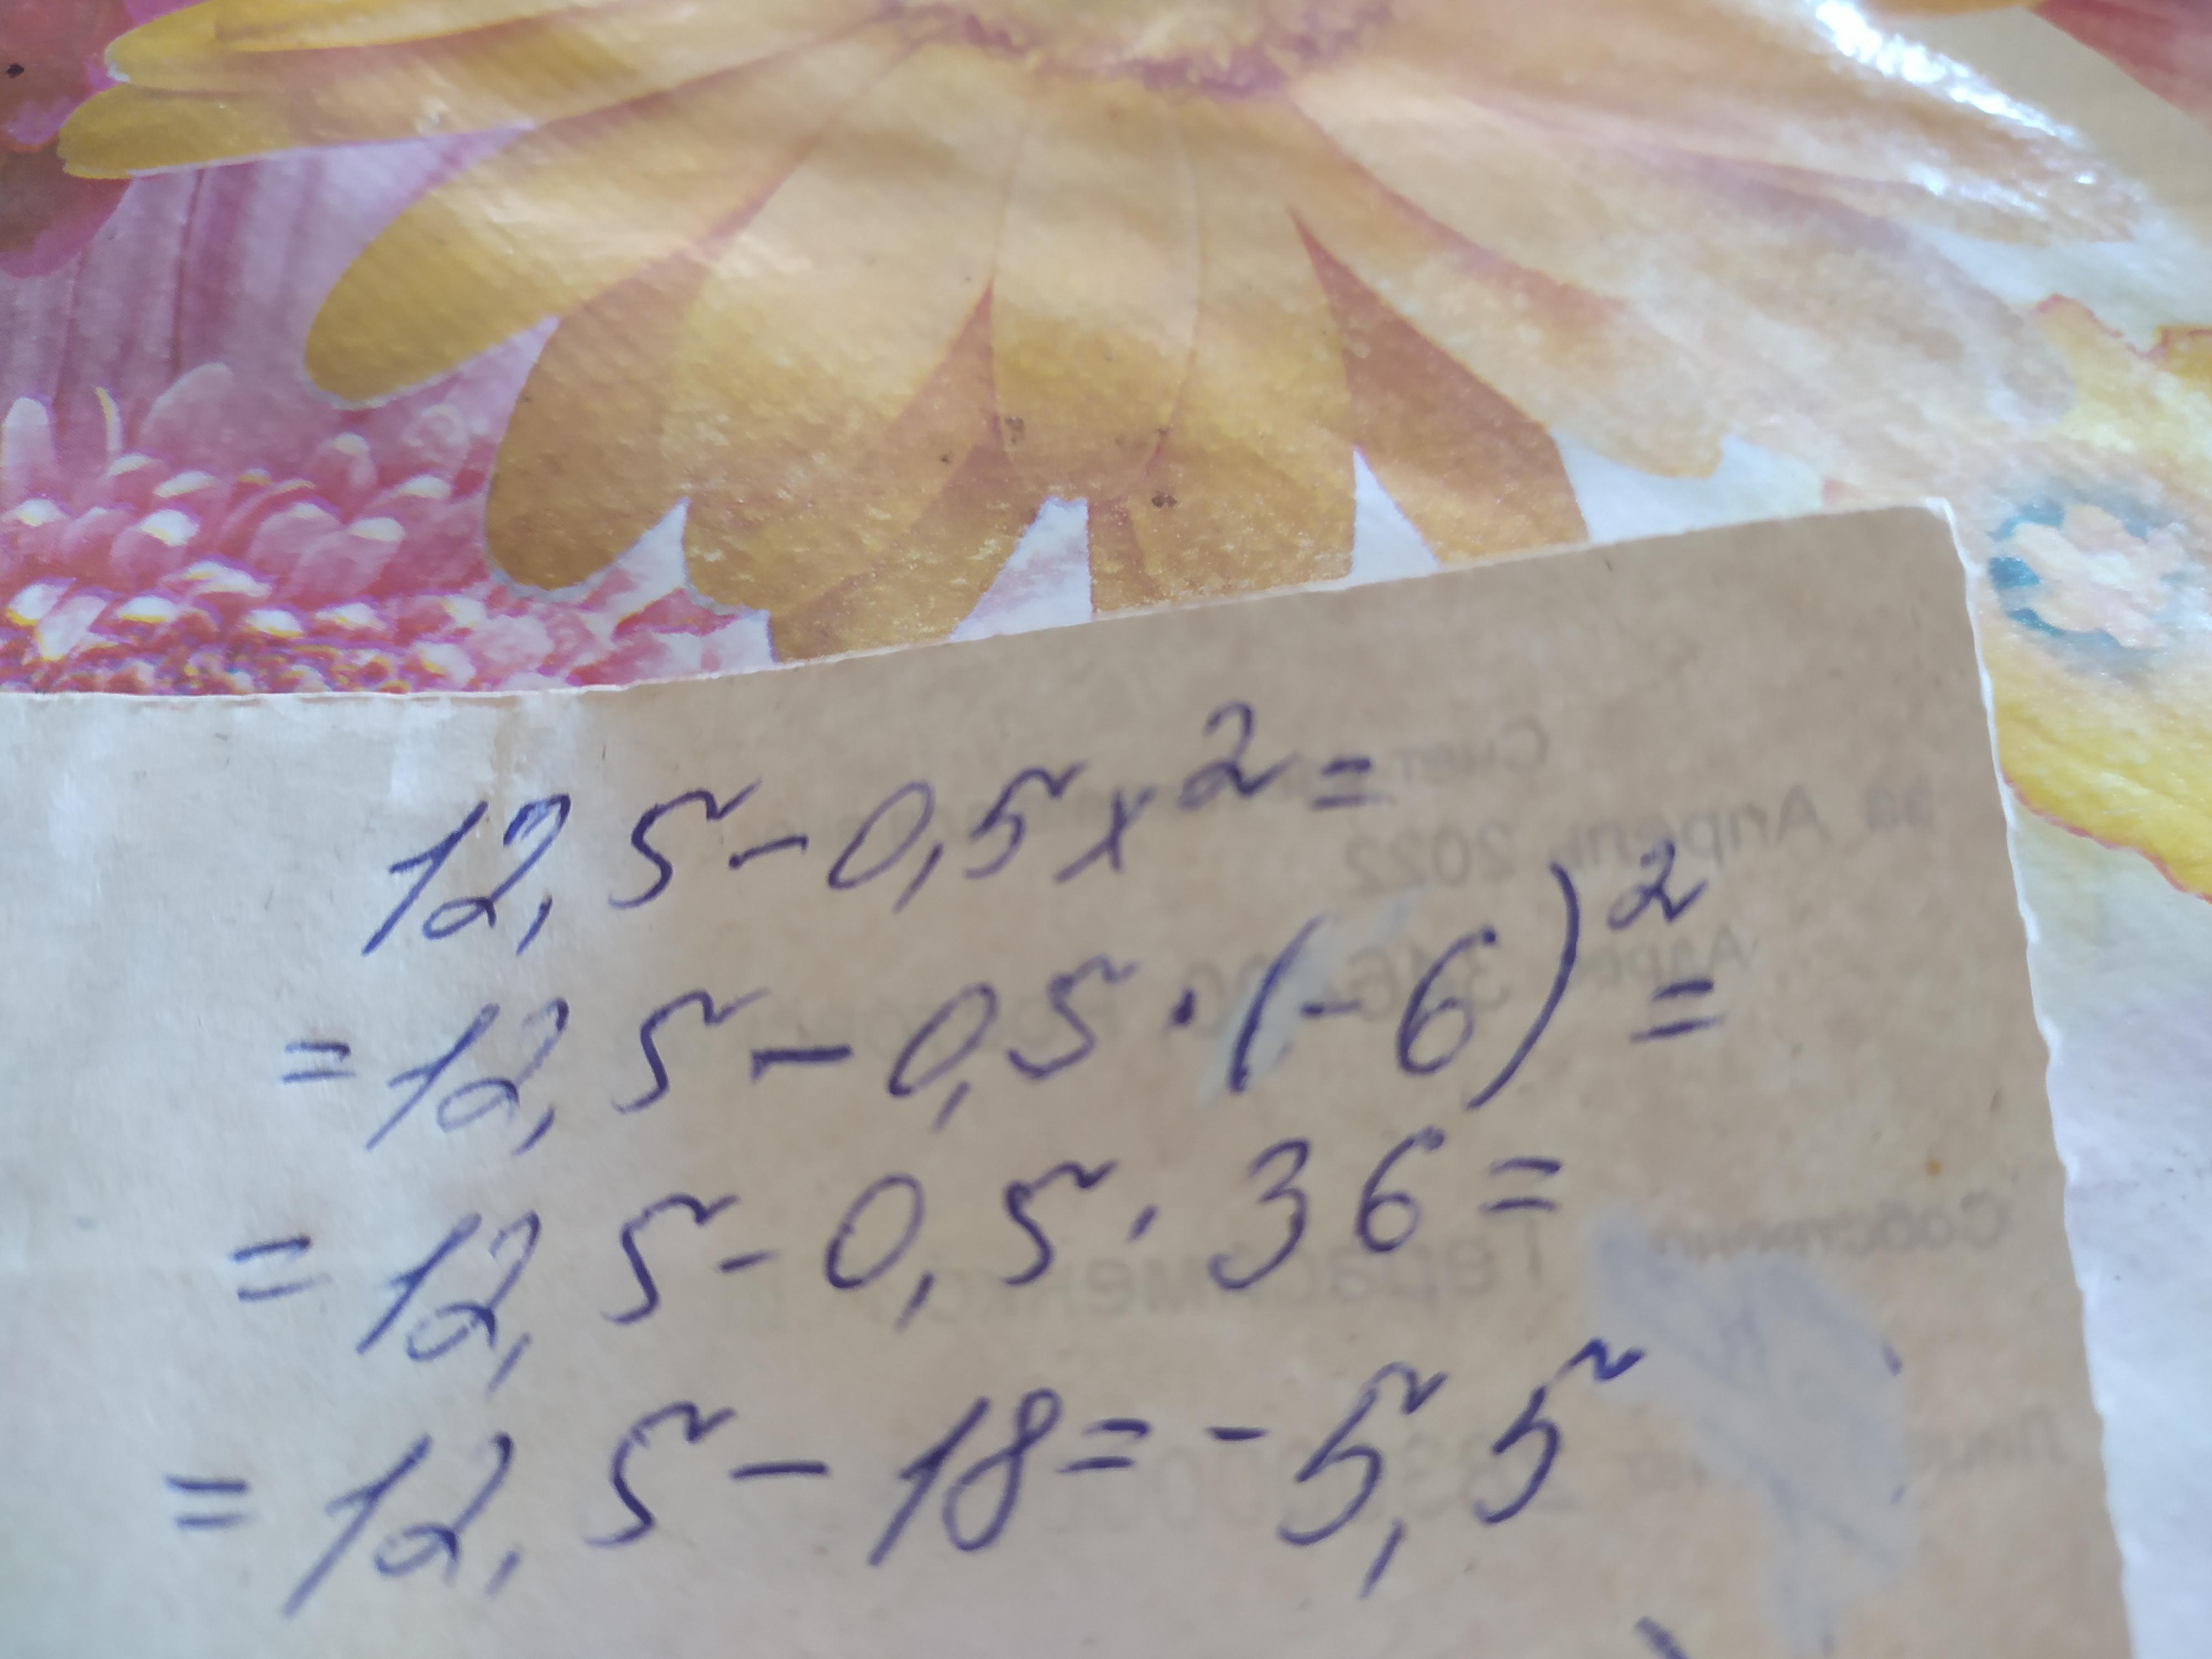 12,5-0,5x²=
=12,5-0,5·(-6)²=
=12,5-0,5·36=
=12,5-18=-5,5